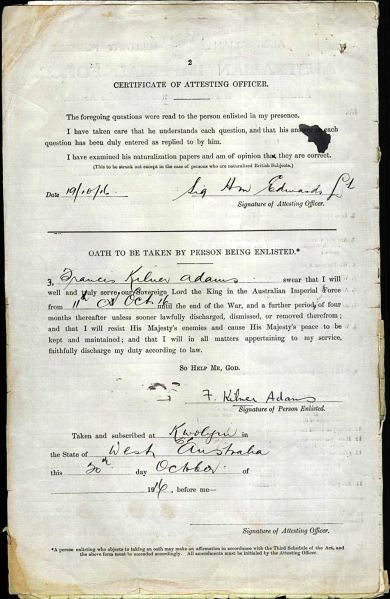 2
CERTIFICATE OF ATTESTING OFFICER.
The foregoing questions were read to the person enlisted in my presence.
I have taken care that he understands each question, and that his answer to each
question has been duly entered as replied to by him.
I have examined his naturalization papers and am of opinion that they are correct.
(This to be struck out except in the case of persons who are naturalized British Subjects.)
Date 19/10/16 Sig Edwards Lt
Signature of Attesting Officer.
OATH TO BE TAKEN BY PERSON BEING ENLISTED.*
I, Francis Kilner Adams swear that I will
well and truly serve our Sovereign Lord the King in the Australian Imperial Force
from 11th of Oct 16 until the end of the War, and a further period of four
months thereafter unless sooner lawfully discharged, dismissed, or removed therefrom;
and that I will resist His Majesty's enemies and cause His Majesty's peace to be
kept and maintained; and that I will in all matters appertaining to my service,
faithfully discharge my duty according to law.
SO HELP ME, GOD.
F. Kilner Adams
Signature of Person Enlisted.
Taken and subscribed at in
the State of West Australia
this day October of
1916, before me—
Signature of Attesting Officer.
*A person enlisting who objects to taking an oath may make an affirmation in accordance with the Third Schedule of the Act, and
the above form must be amended accordingly. All amendments must be initialed by the Attesting Officer.